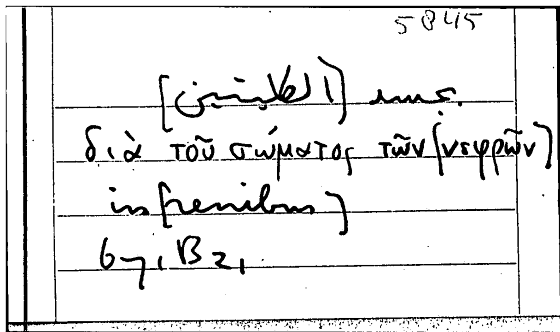 5845
[الكليتين]
διὰ τοῦ σώματος τῶν [νεφρῶν]
in [renibus]